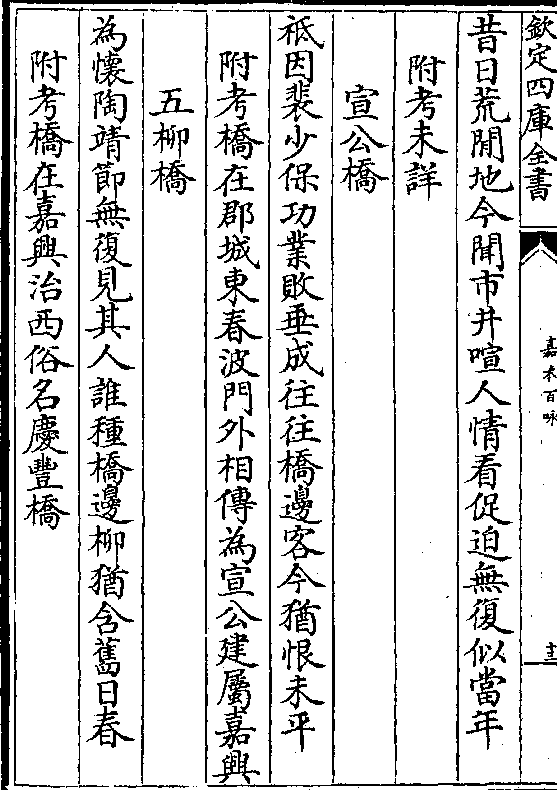 欽定四庫全書
嘉禾百咏
十二
昔日荒閒地今聞市井喧人情看促迫無復似當年
附考未詳
宣公橋
祗因裴少保功業敗垂成往往橋邊客今猶恨未平
附考橋在郡城東春波門外相傳為宣公建屬嘉興
五柳橋
為懷陶靖節無復見其人誰種橋邊柳猶含舊日春
附考橋在嘉興治西俗名慶豐橋